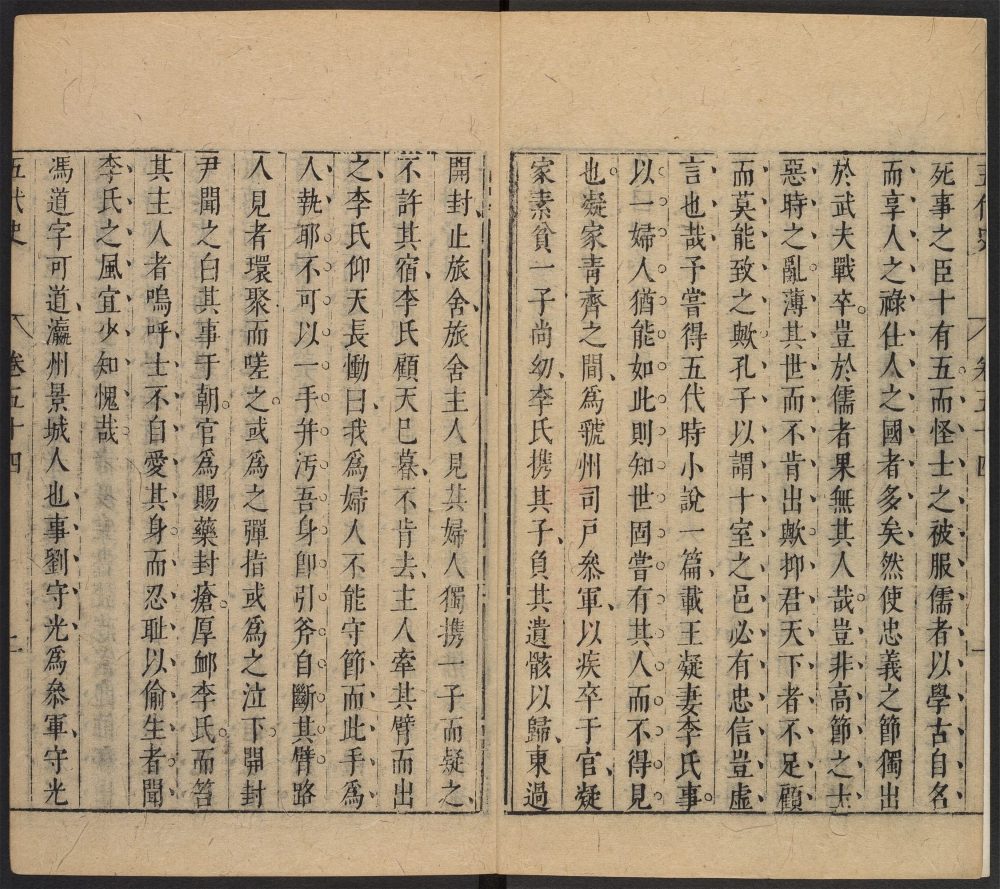 五代史 卷五十四 一
死事之臣十有五而怪士之被服儒者以學古自名
而享人之祿仕人之國者多矣然使忠義之節獨出
於武夫戰卒豈於儒者果無其人哉豈非高節之士
惡時之亂薄其世而不肯出歟抑君天下者不足顧
而莫能致之歟孔子以謂十室之邑必有忠信豈虛
言也哉予嘗得五代時小說一篇載王凝妻李氏事
以一婦人猶能如此則知世固嘗有其人而不得見
也凝家青齊之間爲虢州司戶叅軍以疾卒于官凝
家素貧一子尚幼李氏携其子負其遺骸以歸東過
開封止旅舍旅舍主人見其婦人獨携一子而疑之
不許其宿李氏顧天已暮不肯去主人牽其臂而出
之李氏仰天長慟曰我爲婦人不能守節而此手爲
人執耶不可以一手并汚吾身卽引斧自斷其臂路
人見者環聚而嗟之或爲之彈指或爲之泣下開封
尹聞之白其事于朝官爲賜藥封瘡厚卹李氏而笞
其主人者嗚呼士不自愛其身而忍耻以偷生者聞
李氏之風宜少知愧哉
馮道字可道瀛州景城人也事劉守光爲叅軍守光
五代史 卷五十四 二